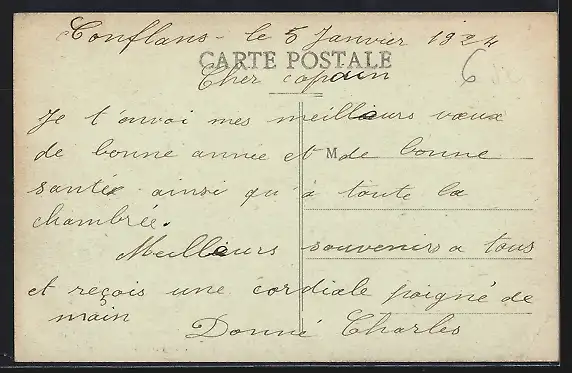 Conflans - le 5 Janvier 1924
CARTE POSTALE
Cher copain
6
Je t'envoi mes meilleurs vœux
de bonne année et M de bonne
santée ainsi qu'a toute la
chambrée.
Meilleurs souvenirs a tous
et reçois une cordiale poigné de
main
Donné Charles